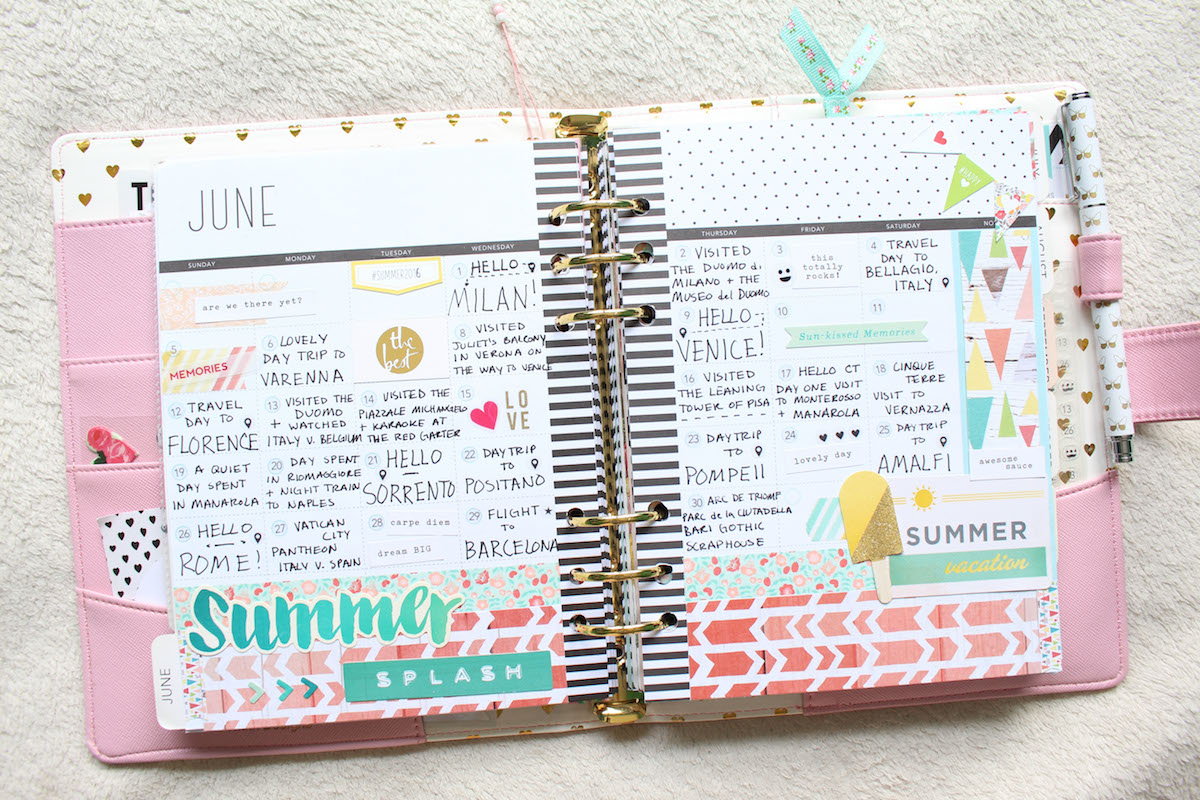 JUNE
SUNDAY
MONDAY
TUESDAY
WEDNESDAY
THURSDAY
FRIDAY
SATURDAY
are we there yet?
#SUMMER2016
1 HELLO
MILAN!
2 VISITED
THE DUOMO di
MILANO + THE
MUSEO del DUOMO
3
this
totally
rocks!
4 TRAVEL
DAY TO
BELLAGIO,
ITALY
5
MEMORIES
6 LOVELY
DAY TRIP TO
VARENNA
the
best
8 VISITED
JULIET'S BALCONY
IN VERONA ON
THE WAY TO VENICE
9 HELLO
VENICE!
10
11
Sun-kissed Memories
12 TRAVEL
DAY TO
FLORENCE
13 VISITED THE
DUOMO
+ WATCHED
ITALY V. BELGIUM
14 VISITED THE
PIAZZALE MICHANGELO
+ KARAOKE AT
THE RED GARTER
15
LO
VE
16 VISITED
THE LEANING
TOWER OF PISA
17 HELLO CT
DAY ONE VISIT
TO MONTEROSSO
+ MANAROLA
18 CINQUE
TERRE
VISIT TO
VERNAZZA
19 A QUIET
DAY SPENT
IN MANAROLA
20 DAY SPENT
IN RIOMAGGIORE
+ NIGHT TRAIN
TO NAPLES
21 HELLO
SORRENTO
22 DAY TRIP
TO
POSITANO
23 DAY TRIP
TO
POMPEII
24
lovely day
25 DAY TRIP
TO
AMALFI
awesome
sauce
26 HELLO
ROME!
27 VATICAN
CITY
PANTHEON
ITALY V. SPAIN
28 carpe diem
dream BIG
29 FLIGHT
TO
BARCELONA
30 ARC DE TRIOMF
PARC de la CIUTADELLA
BARI GOTHIC
SCRAPHOUSE
SUMMER
vacation
Summer
SPLASH
JUNE